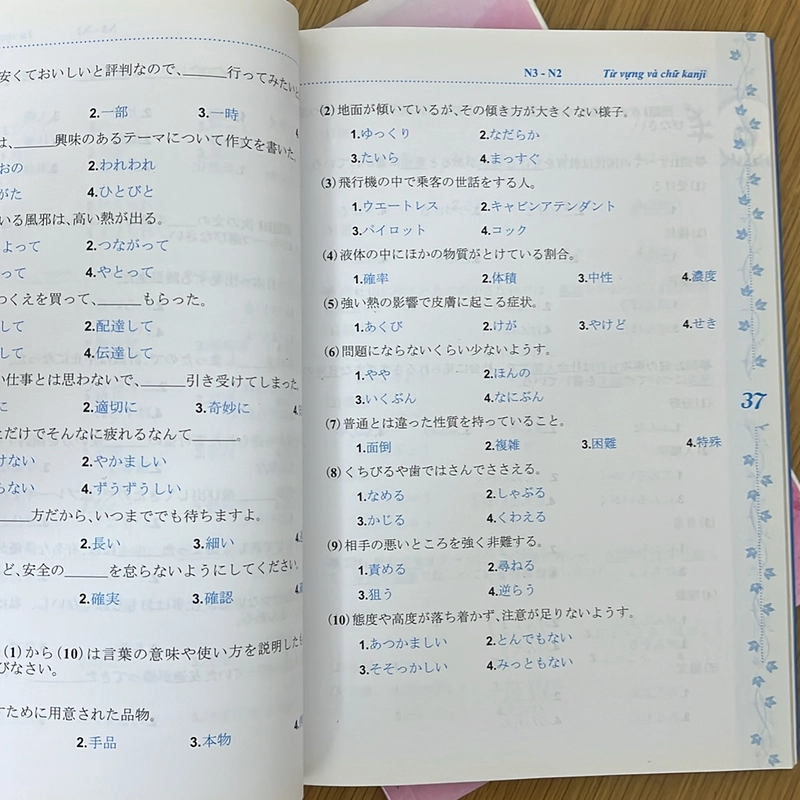 安くておいしいと評判なので、_____行ってみたいと
2.一部 3.一時
は、_____興味のあるテーマについて作文を書いた。
おの 2.われわれ
がた 4.ひとびと
いる風邪は、高い熱が出る。
よって 2.つながって
って 4.やとって
つくえを買って、_____もらった。
して 2.配達して
して 4.伝達して
い仕事とは思わないで、_____引き受けてしまった
に 2.適切に 3.奇妙に
ただけでそんなに疲れるなんて_____。
けない 2.やかましい
らない 4.ずうずうしい
_____方だから、いつまででも待ちますよ。
2.長い 3.細い
ど、安全の_____を怠らないようにしてください。
2.確実 3.確認
(1)から(10)は言葉の意味や使い方を説明したも
びなさい。
すために用意された品物。
2.手品 3.本物
N3 - N2 Từ vựng và chữ kanji
(2) 地面が傾いているが、その傾き方が大きくない様子。
1.ゆっくり 2.なだらか
3.たいら 4.まっすぐ
(3) 飛行機の中で乗客の世話をする人。
1.ウエートレス 2.キャビンアテンダント
3.パイロット 4.コック
(4) 液体の中にほかの物質がとけている割合。
1.確率 2.体積 3.中性 4.濃度
(5) 強い熱の影響で皮膚に起こる症状。
1.あくび 2.けが 3.やけど 4.せき
(6) 問題にならないくらい少ないようす。
1.やや 2.ほんの
3.いくぶん 4.なにぶん
(7) 普通とは違った性質を持っていること。
1.面倒 2.複雑 3.困難 4.特殊
(8) くちびるや歯ではさんでささえる。
1.なめる 2.しゃぶる
3.かじる 4.くわえる
(9) 相手の悪いところを強く非難する。
1.責める 2.尋ねる
3.狙う 4.逆らう
(10) 態度や高度が落ち着かず、注意が足りないようす。
1.あつかましい 2.とんでもない
3.そそっかしい 4.みっともない
37